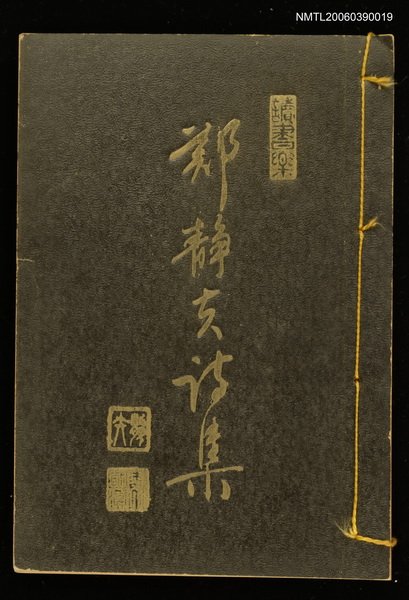 NMTL20060390019
讀書樂
鄭静夫诗集